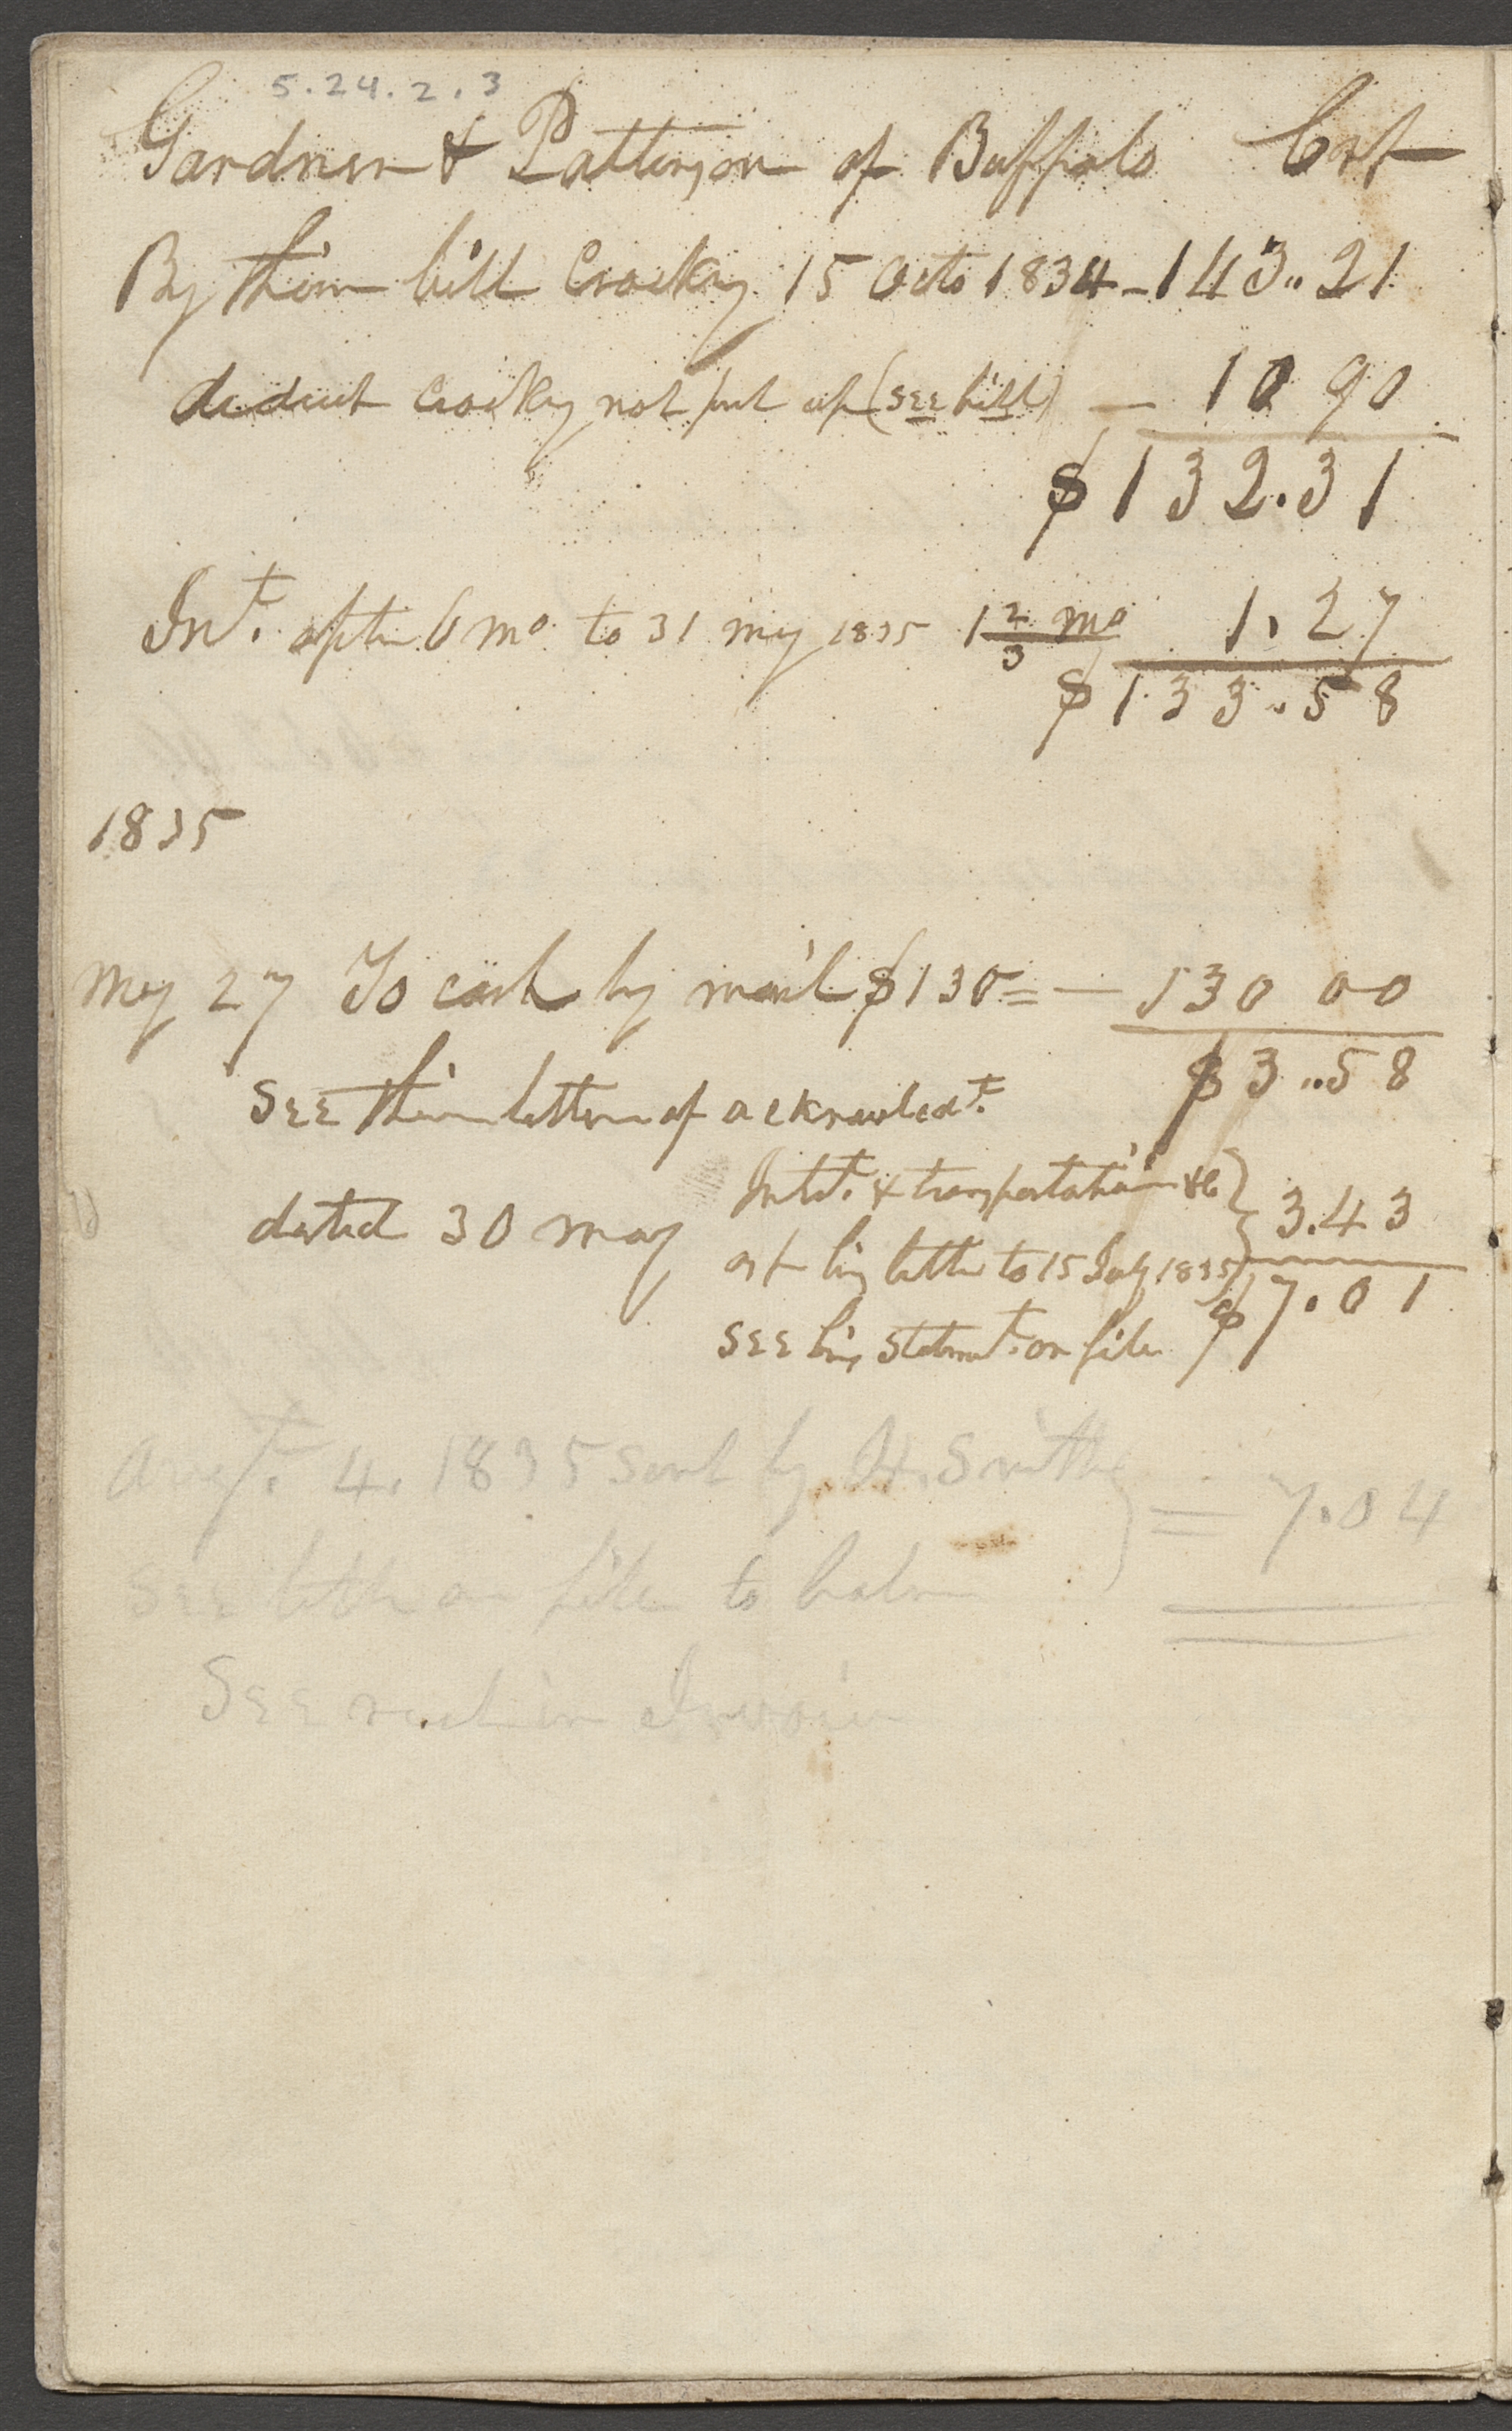 5.24.2.3
Gardner & Patterson of Buffalo Crt
By their bill Crocky 15 Octo 1834 - 143..21
deduct Crocky not put up (see bill) — 10 90
$132.31
Int. after 6 mo. to 31 may 1835 1 2/3 mo 1.27
$133.58
1835
May 27 To cash by mail $130= — 130 00
$3..58
See their letter of acknowledt.
dated 30 may
Intst. & transportation &c } 3.43
as pr his letter to 15 July 1835
$7.01
See his statmt. on file
Augt. 4. 1835 sent by H. Smith } = 7.04
See letter on file to
See Invoice